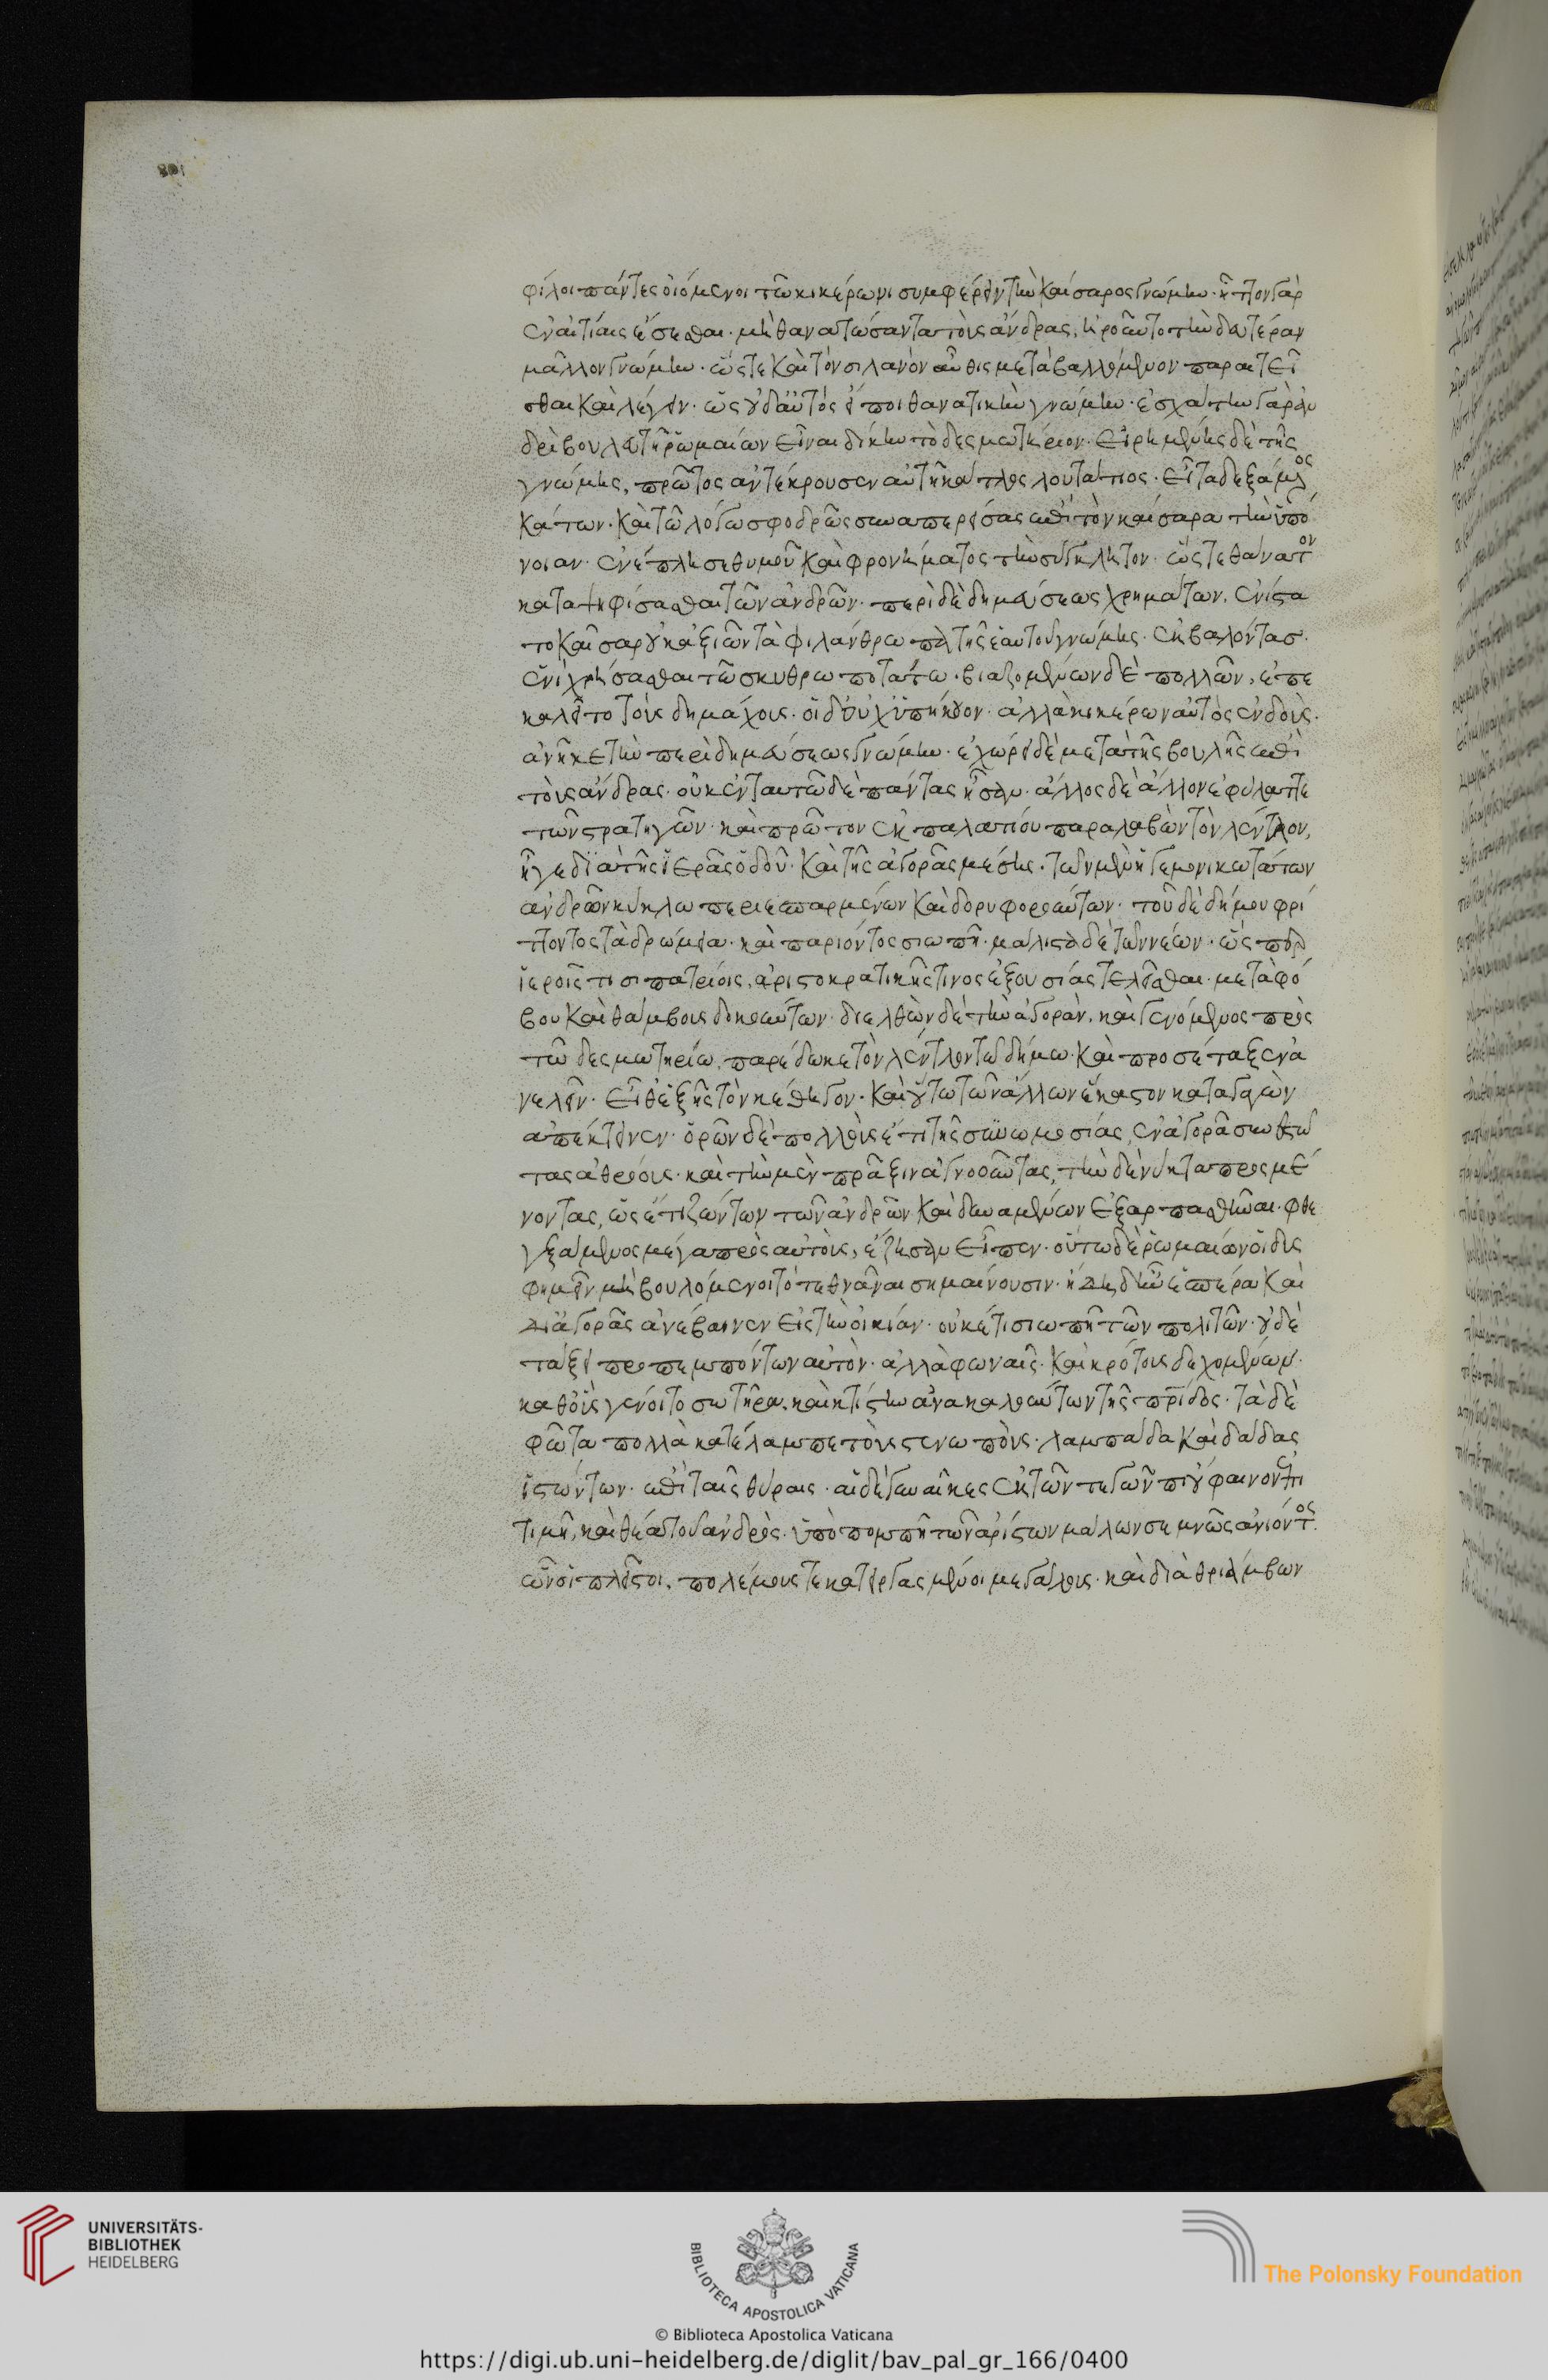 φίλοι πάντες οἰόμενοι τῶ κικέρωνι συμφέρειν τὴν καίσαρος γνώμην. ἧττον γὰρ
ἐν αἰτίαις ἔσεσθαι. μὴ θανατώσαντα τοὺς ἄνδρας, ἡροῦντο τὴν δευτέραν
μᾶλλον γνώμην. ὥστε καὶ τὸν σιλανὸν αὖθις μεταβαλλόμενον παραιτεῖ
σθαι καὶ λέγειν. ὡς οὐδ' αὐτός εἴποι θανατικὴν γνώμην. ἐσχάτην γὰρ ἀν
δρὶ βουλευτῆ ῥωμαίων εἶναι δίκην τὸ δεσμωτήριον. εἰρημένης δὲ τῆς
γνώμης, πρῶτος ἀντέκρουσεν αὐτῆ κάτλος λουτάτιος. εἶτα δεξάμενος
κάτων. καὶ τῶ λόγω σφοδρῶς συναπερείσας ἐπὶ τὸν καίσαρα τὴν ὑπό
νοιαν. ἐνέπλησε θυμοῦ καὶ φρονήματος τὴν σύγκλητον. ὥστε θάνατον
καταψηφίσασθαι τῶν ἀνδρῶν. περὶ δὲ δημεύσεως χρημάτων, ἐνίστα
το καῖσαρ οὐκ ἀξιῶν τὰ φιλάνθρωπα τῆς ἑαυτοῦ γνώμης. ἐκβαλόντας.
ἑνὶ χρήσασθαι τῶ σκυθρωποτάτω. βιαζομένων δὲ πολλῶν, ἐπε
καλεῖτο τοὺς δημάχους. οἱ δ' οὐχ ὑπήκουον. ἀλλὰ κικέρων αὐτὸς ἐνδοὺς.
ἀνῆκε τὴν περὶ δημεύσεως γνώμην. ἐχώρει δὲ μετὰ τῆς βουλῆς ἐπὶ
τοὺς ἄνδρας. οὐκ ἐν ταυτῶ δὲ πάντας ἦσαν. ἄλλος δὲ ἄλλον ἐφύλαττε
τῶν στρατηγῶν. καὶ πρῶτον ἐκ παλατίου παραλαβὼν τὸν λέντλον,
ἦγε διὰ τῆς ἱερᾶς ὁδοῦ. καὶ τῆς ἀγορᾶς μέσης. τῶν μὲν ἡγεμονικωτάτων
ἀνδρῶν κύκλω περιεσπαρμένων καὶ δορυφορούντων. τοῦ δὲ δήμου φρί
ττοντος τὰ δρώμενα. καὶ παριόντος σιωπῆ. μάλιστα δὲ τῶν νέων. ὥσπερ
ἱεροῖς τισι πατρίοις, ἀριστοκρατικῆς τινος ἐξουσίας τελεῖσθαι. μετὰ φό
βου καὶ θάμβους δοκούντων. διελθὼν δὲ τὴν ἀγορὰν, καὶ γενόμενος πρὸς
τῶ δεσμωτηρίω, παρέδωκε τὸν λέντλον τῶ δήμω. καὶ προσέταξεν ἀ
νελεῖν. εἶθ' ἑξῆς τὸν κέθηγον. καὶ οὕτω τῶν ἄλλων ἕκαστον καταγαγὼν
ἀπέκτεινεν. ὁρῶν δὲ πολλοὺς ἔτι τῆς συνωμοσίας, ἐν ἀγορᾶ συνεστῶ
τας ἀθρόους. καὶ τὴν μὲν πρᾶξιν ἀγνοοῦντας, τὴν δὲ νύκτα προσμέ
νοντας, ὡς ἔτι ζώντων τῶν ἀνδρῶν καὶ δυναμένων ἐξαρπασθῆναι. φθε
γξάμενος μέγα πρὸς αὐτοὺς, ἔζησαν εἶπεν. οὕτω δὲ ῥωμαίων οἱ δυς
φημεῖν μὴ βουλόμενοι τὸ τεθνᾶναι σημαίνουσιν. ἤδη δ' ἦν ἑσπέρα καὶ
δι' ἀγορᾶς ἀνέβαινεν εἰς τὴν οἰκίαν. οὐκέτι σιωπῆ τῶν πολιτῶν. οὐδὲ
τάξει προπεμπόντων αὐτὸν. ἀλλὰ φωναῖς. καὶ κρότοις δεχομένων.
καθ' οὓς γένοιτο σωτῆρα, καὶ κτίστην ἀνακαλούντων τῆς πρίδος. τὰ δὲ
φῶτα πολλὰ κατέλαμπε τοὺς στενωποὺς. λαμπάδα καὶ δᾶδας
ἱστώντων. ἐπὶ ταῖς θύραις. αἱ δὲ γυναῖκες ἐκ τῶν τεγῶν προὔφαινον ἐπὶ
τιμῆ, καὶ θέα τοῦ ἀνδρὸς. ὑπὸ πομπῆ τῶν ἀρίστων μάλων σεμνῶς ἀνιόντος.
ὧν οἱ πλεῖστοι, πολέμους τε κατειργασμένοι μεγάλους. καὶ διὰ θριάμβων
UNIVERSITÄTS-
BIBLIOTHEK
HEIDELBERG
BIBLIOTECA APOSTOLICA VATICANA
The Polonsky Foundation
© Biblioteca Apostolica Vaticana
https://digi.ub.uni-heidelberg.de/diglit/bav_pal_gr_166/0400